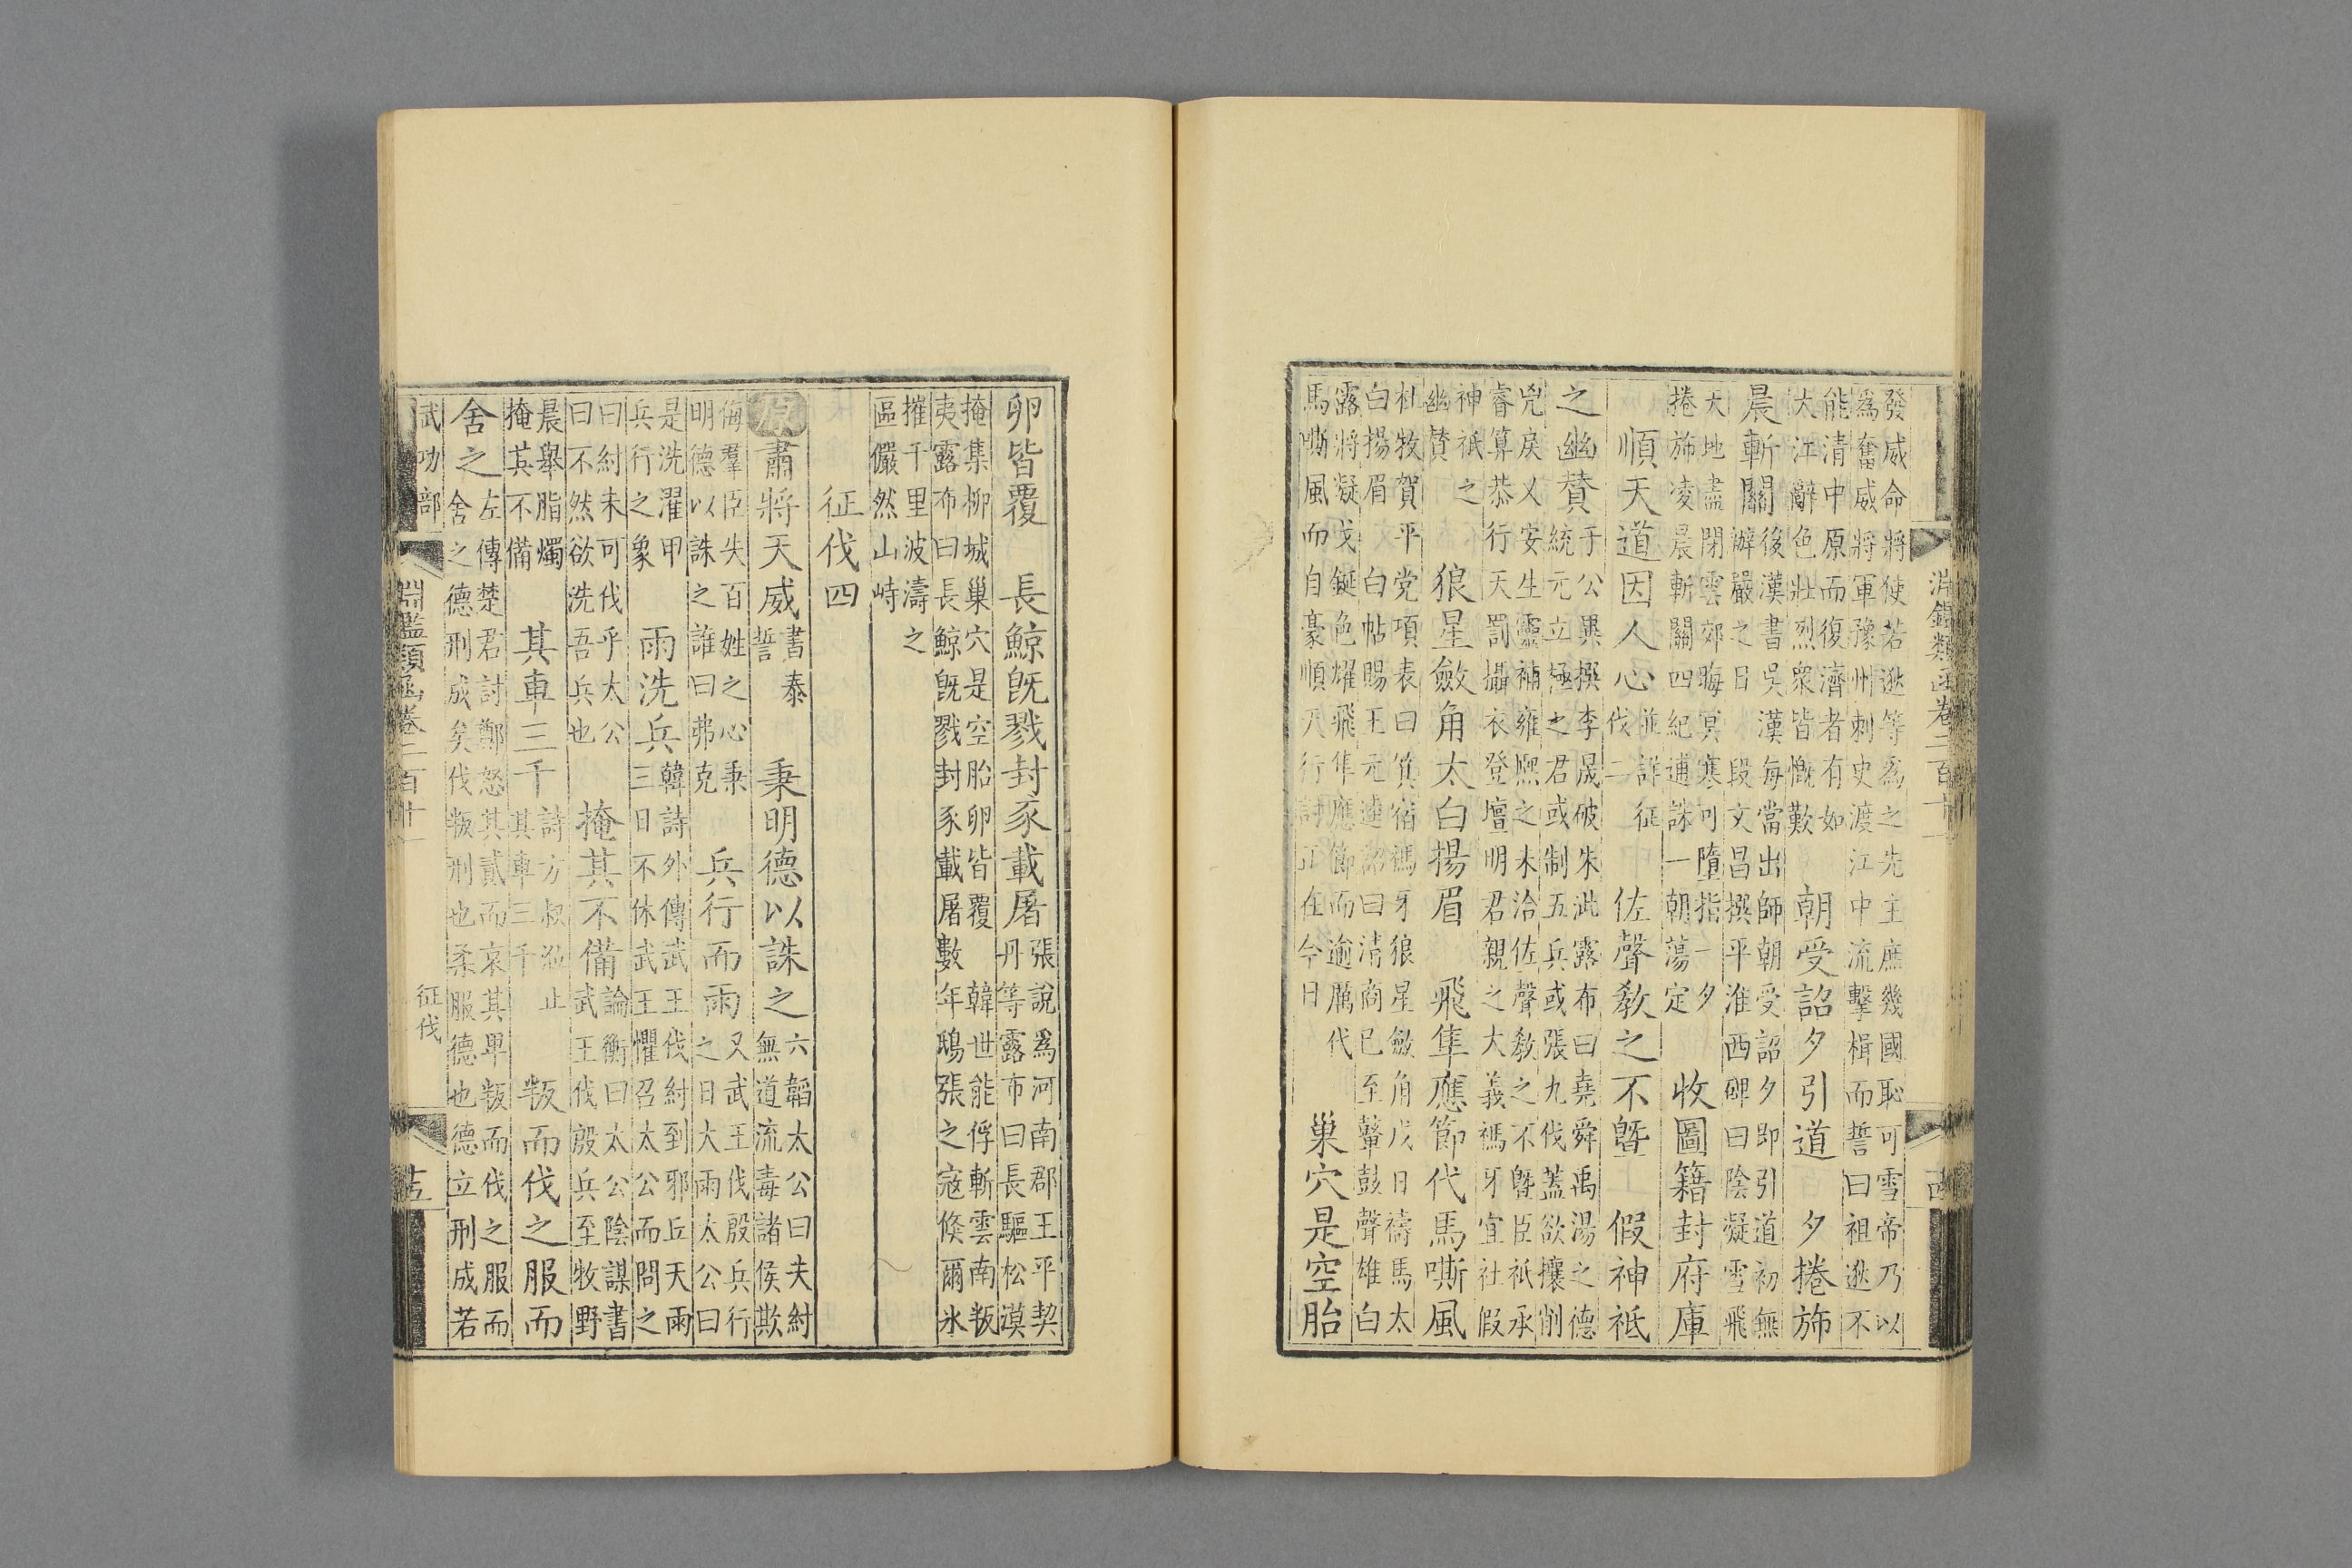 淵鑑類函卷二百十一
發威命將使若逖等爲之先主庶幾國恥可雪帝乃以
爲奮威將軍豫州刺史渡江中流擊楫而誓曰祖逖不
能清中原而復濟者有如
大江辭色壯烈衆皆慨歎
朝受詔夕引道
夕捲斾
晨斬關
後漢書吳漢每當出師朝受詔夕即引道初無
辦嚴之日
段文昌撰平淮西碑曰陰凝雪飛
天地盡閉雲郊晦冥寒可墮指一夕
捲斾凌晨斬關四紀逋誅一朝蕩定
收圖籍封府庫
順天道因人心
並詳征
伐二
佐聲敎之不曁
假神祗
之幽贊
于公異撰李晟破朱泚露布曰堯舜禹湯之德
統元立極之君或制五兵或張九伐蓋欲攘削
兇戾乂安生靈補雍熙之未洽佐聲敎之不曁臣祇承
睿算恭行天罰攝衣登壇明君親之大義禡牙宜社假
神祇之
幽贊
狼星斂角太白揚眉
飛隼應節代馬嘶風
杜牧賀平党項表曰箕宿禡牙狼星斂角戊日禱馬太
白揚眉
白帖賜王元逵詔曰清商已至鼙鼓聲雄白
露將凝戈鋋色耀飛隼應節而逾厲代
馬嘶風而自豪順天行討正在今日
巢穴是空胎
卵皆覆
長鯨旣戮封豕載屠
張說爲河南郡王平契
丹等露布曰長驅松漠
掩集柳城巢穴是空胎卵皆覆
韓世能俘斬雲南叛
夷露布曰長鯨旣戮封豕載屠數年鴟張之寇倐爾氷
摧千里波濤之
區儼然山峙
征伐四
原
肅將天威
書泰
誓
秉明德以誅之
六韜太公曰夫紂
無道流毒諸侯欺
侮羣臣失百姓之心秉
明德以誅之誰曰弗克
兵行而雨
又武王伐殷兵行
之日大雨太公曰
是洗濯甲
兵行之象
雨洗兵
韓詩外傳武王伐紂到邢丘天雨
三日不休武王懼召太公而問之
曰紂未可伐乎太公
曰不然欲洗吾兵也
掩其不備
論衡曰太公陰謀書
武王伐殷兵至牧野
晨舉脂燭
掩其不備
其車三千
詩方叔涖止
其車三千
叛而伐之服而
舍之
左傳楚君討鄭怒其貳而哀其卑叛而伐之服而
舍之德刑成矣伐叛刑也柔服德也德立刑成若
武功部
淵鑑類函卷二百十一
征伐